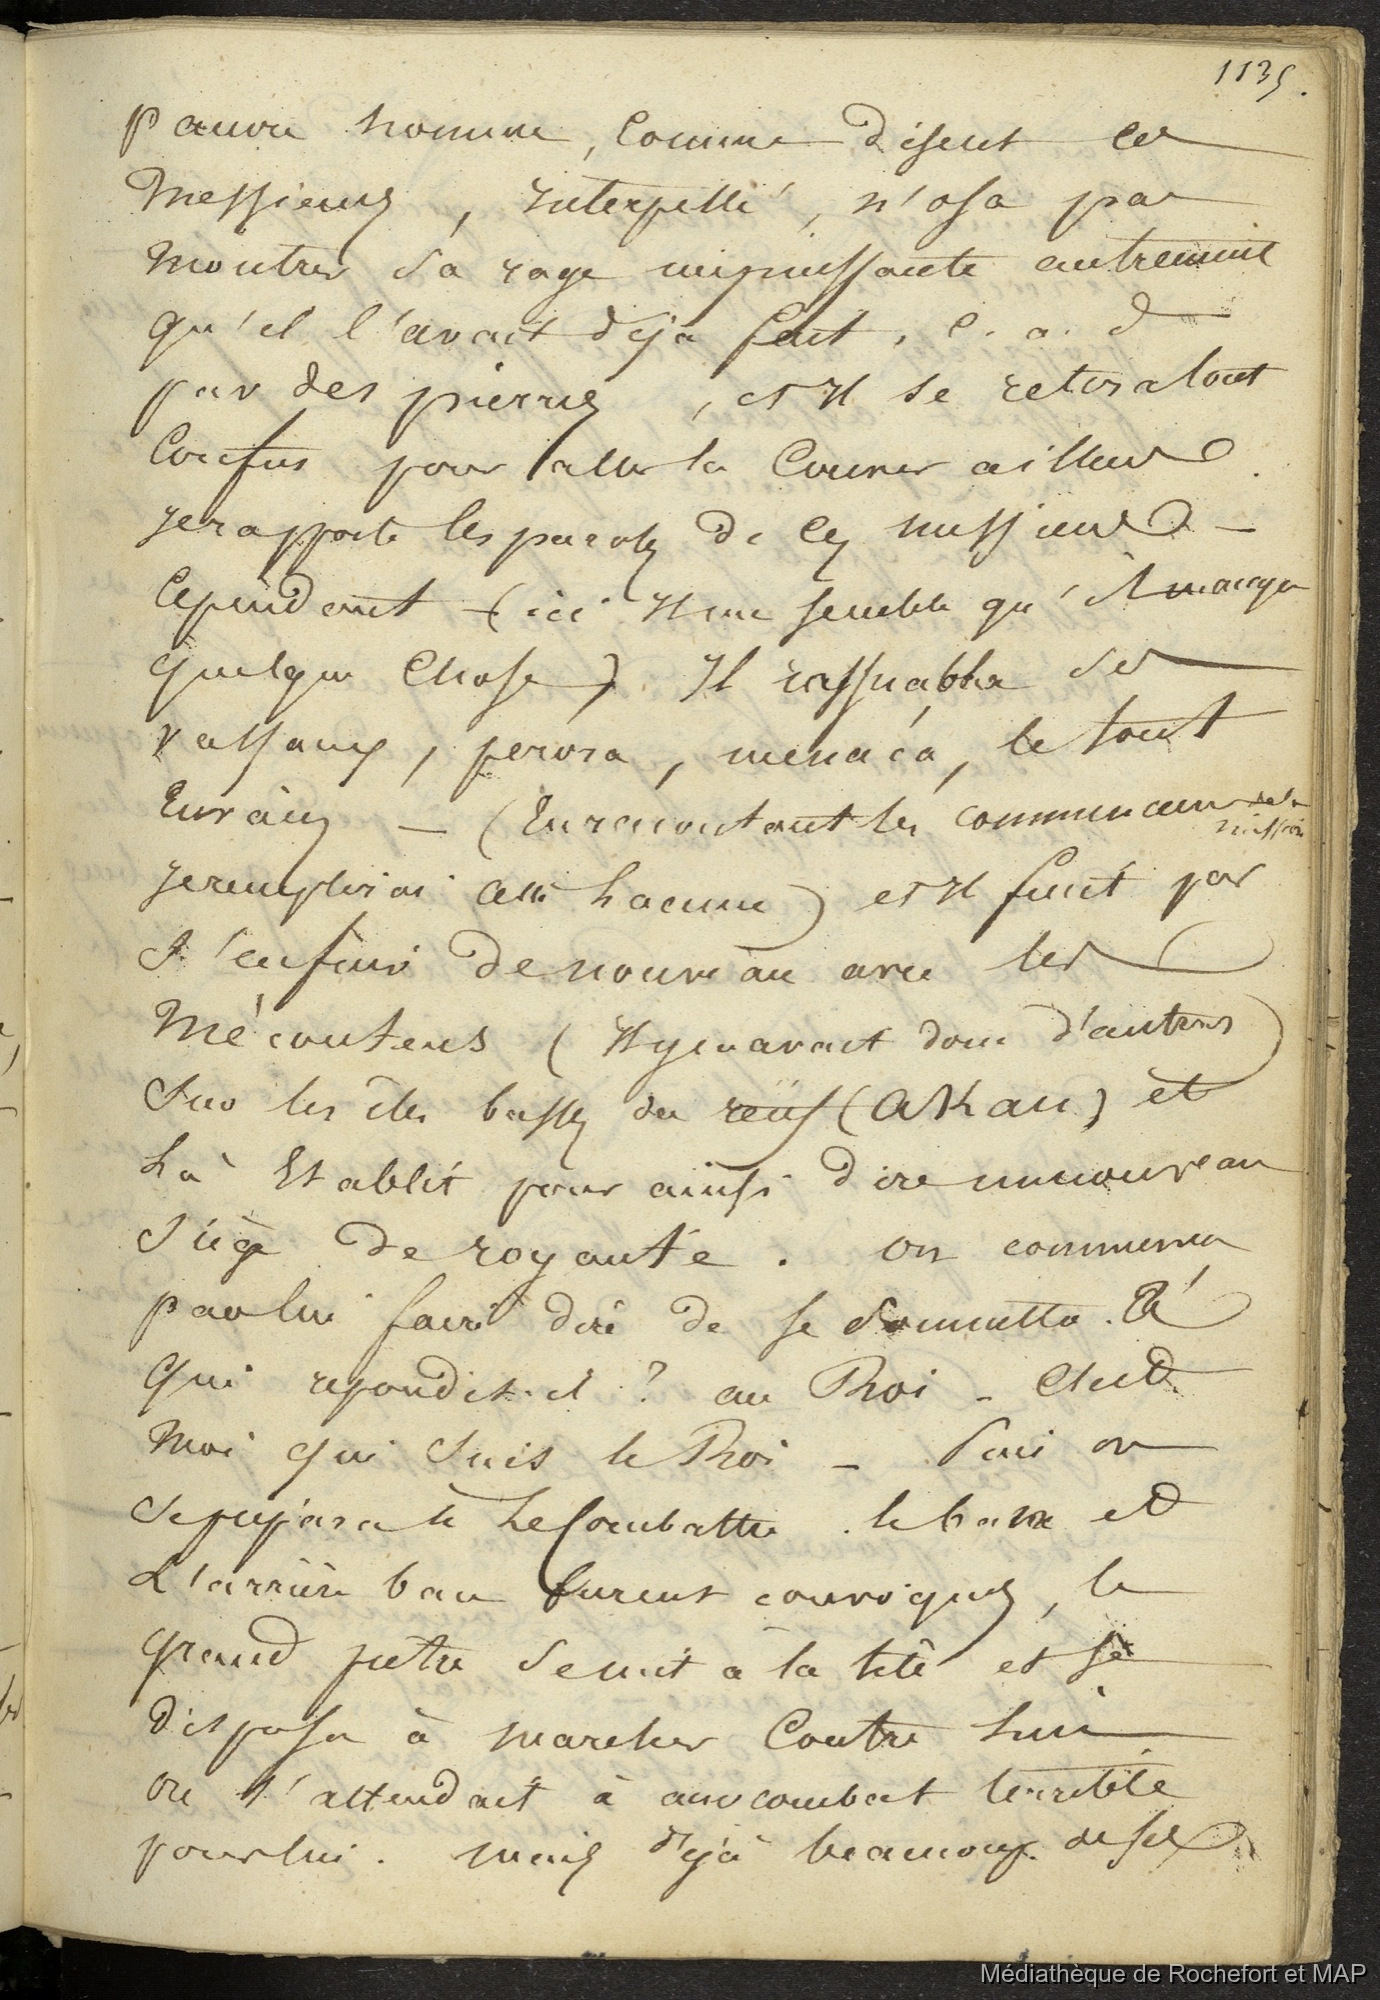 1135.
pauvre homme, comme disent ces
Messieurs, interpellé, n'osa pas
montrer sa rage impuissante autrement
qu'il l'avait déjà fait, c. a. d
par des pierres, et il se retira tout
Confus pour aller la Couver ailleurs.
je rapporte les paroles de ces messieurs —
Cependant — (ici il me semble qu'il manque
quelque Chose) Il rassembla ses
vassaux, perora, menaça, le tout
En vain — (En racontant les commencem de la
mission
je remplirai cette Lacune) et il finit par
s'enfuir de nouveau avec les
Mécontens (il y en avait donc d'autres)
sur les iles basses du reüf (aKau) et
Là Etablit pour ainsi dire un nouveau
siége de royauté. On commença
par lui faire dire de se soumettre. Eh!
à qui repondit-il ? au Roi — C'est
moi qui suis le Roi — Puis on
se prépara à Le Combattre. le ban et
L'arrière ban furent convoqués, le
grand prêtre se mit à la tête et se
disposa à marcher Contre Lui
on s'attendait à un combat terrible
pour lui. mais déjà beaucoup de ses
Médiathèque de Rochefort et MAP